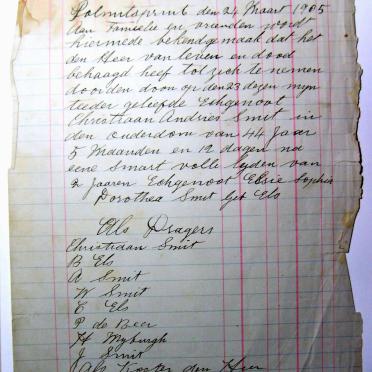 Palmitspruit den 24 Maart 1905
Aan Familie en vrienden word
hiermede bekendgemaak dat het
den Heer van leven en dood
behaagd heeft tot zich te nemen
door den dood op den 23 dezer myn
teeder geliefde Echgenoot
Christiaan Andries Smit in
den ouderdom van 44 Jaar
5 Maanden en 12 dagen na
eene Smart volle lyden van
2 jaaren Echgenoot Elsie Sophia
Dorothea Smit Geb Els
Als Dragers
Christiaan Smit
B Els
A Smit
W Smit
C Els
P de Beer
H Myburgh
J Smit
Als Koster den Heer